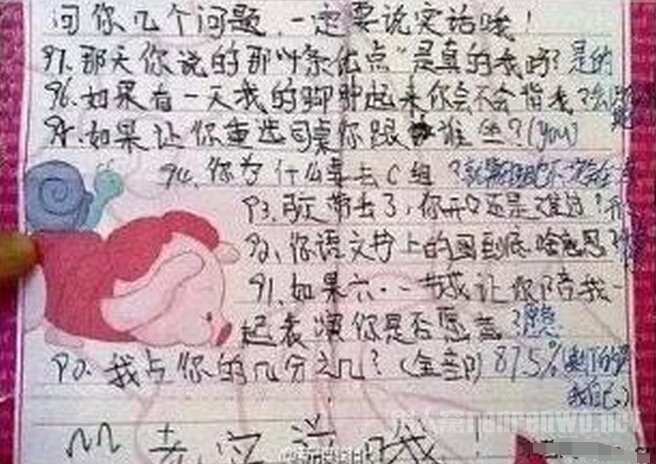 问你几个问题，一定要说实话哦！
97、那天你说的那"条优点"是真的我吗？是的
96、如果有一天我的脚肿起来你会不会背我？会
95、如果让你重选同桌你跟谁坐？(you)
94、你为什么要去C组？就算
93、带去了，你开心还是难过？
92、你语文书上的图到底啥意思？
91、如果六·一节我让你陪我一
起表演你是否愿意？愿意
90、我占你的几分之几？(全部) 87.5% (剩下的是
我自己)
老实说哦！
nanrenwo.net